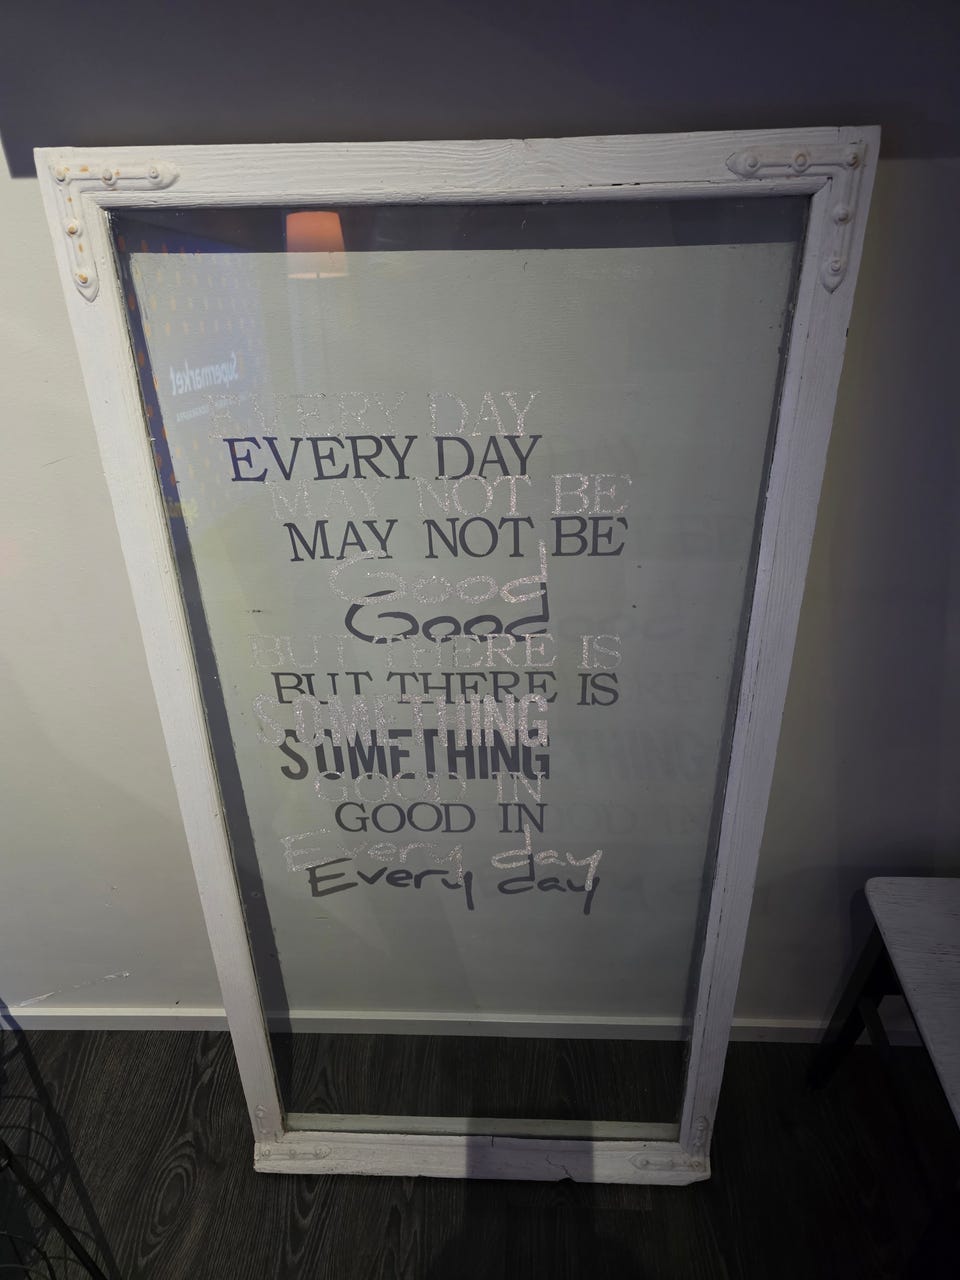 EVERY DAY
MAY NOT BE
Good
BUT THERE IS
SOMETHING
GOOD IN
Every day
Supermarket